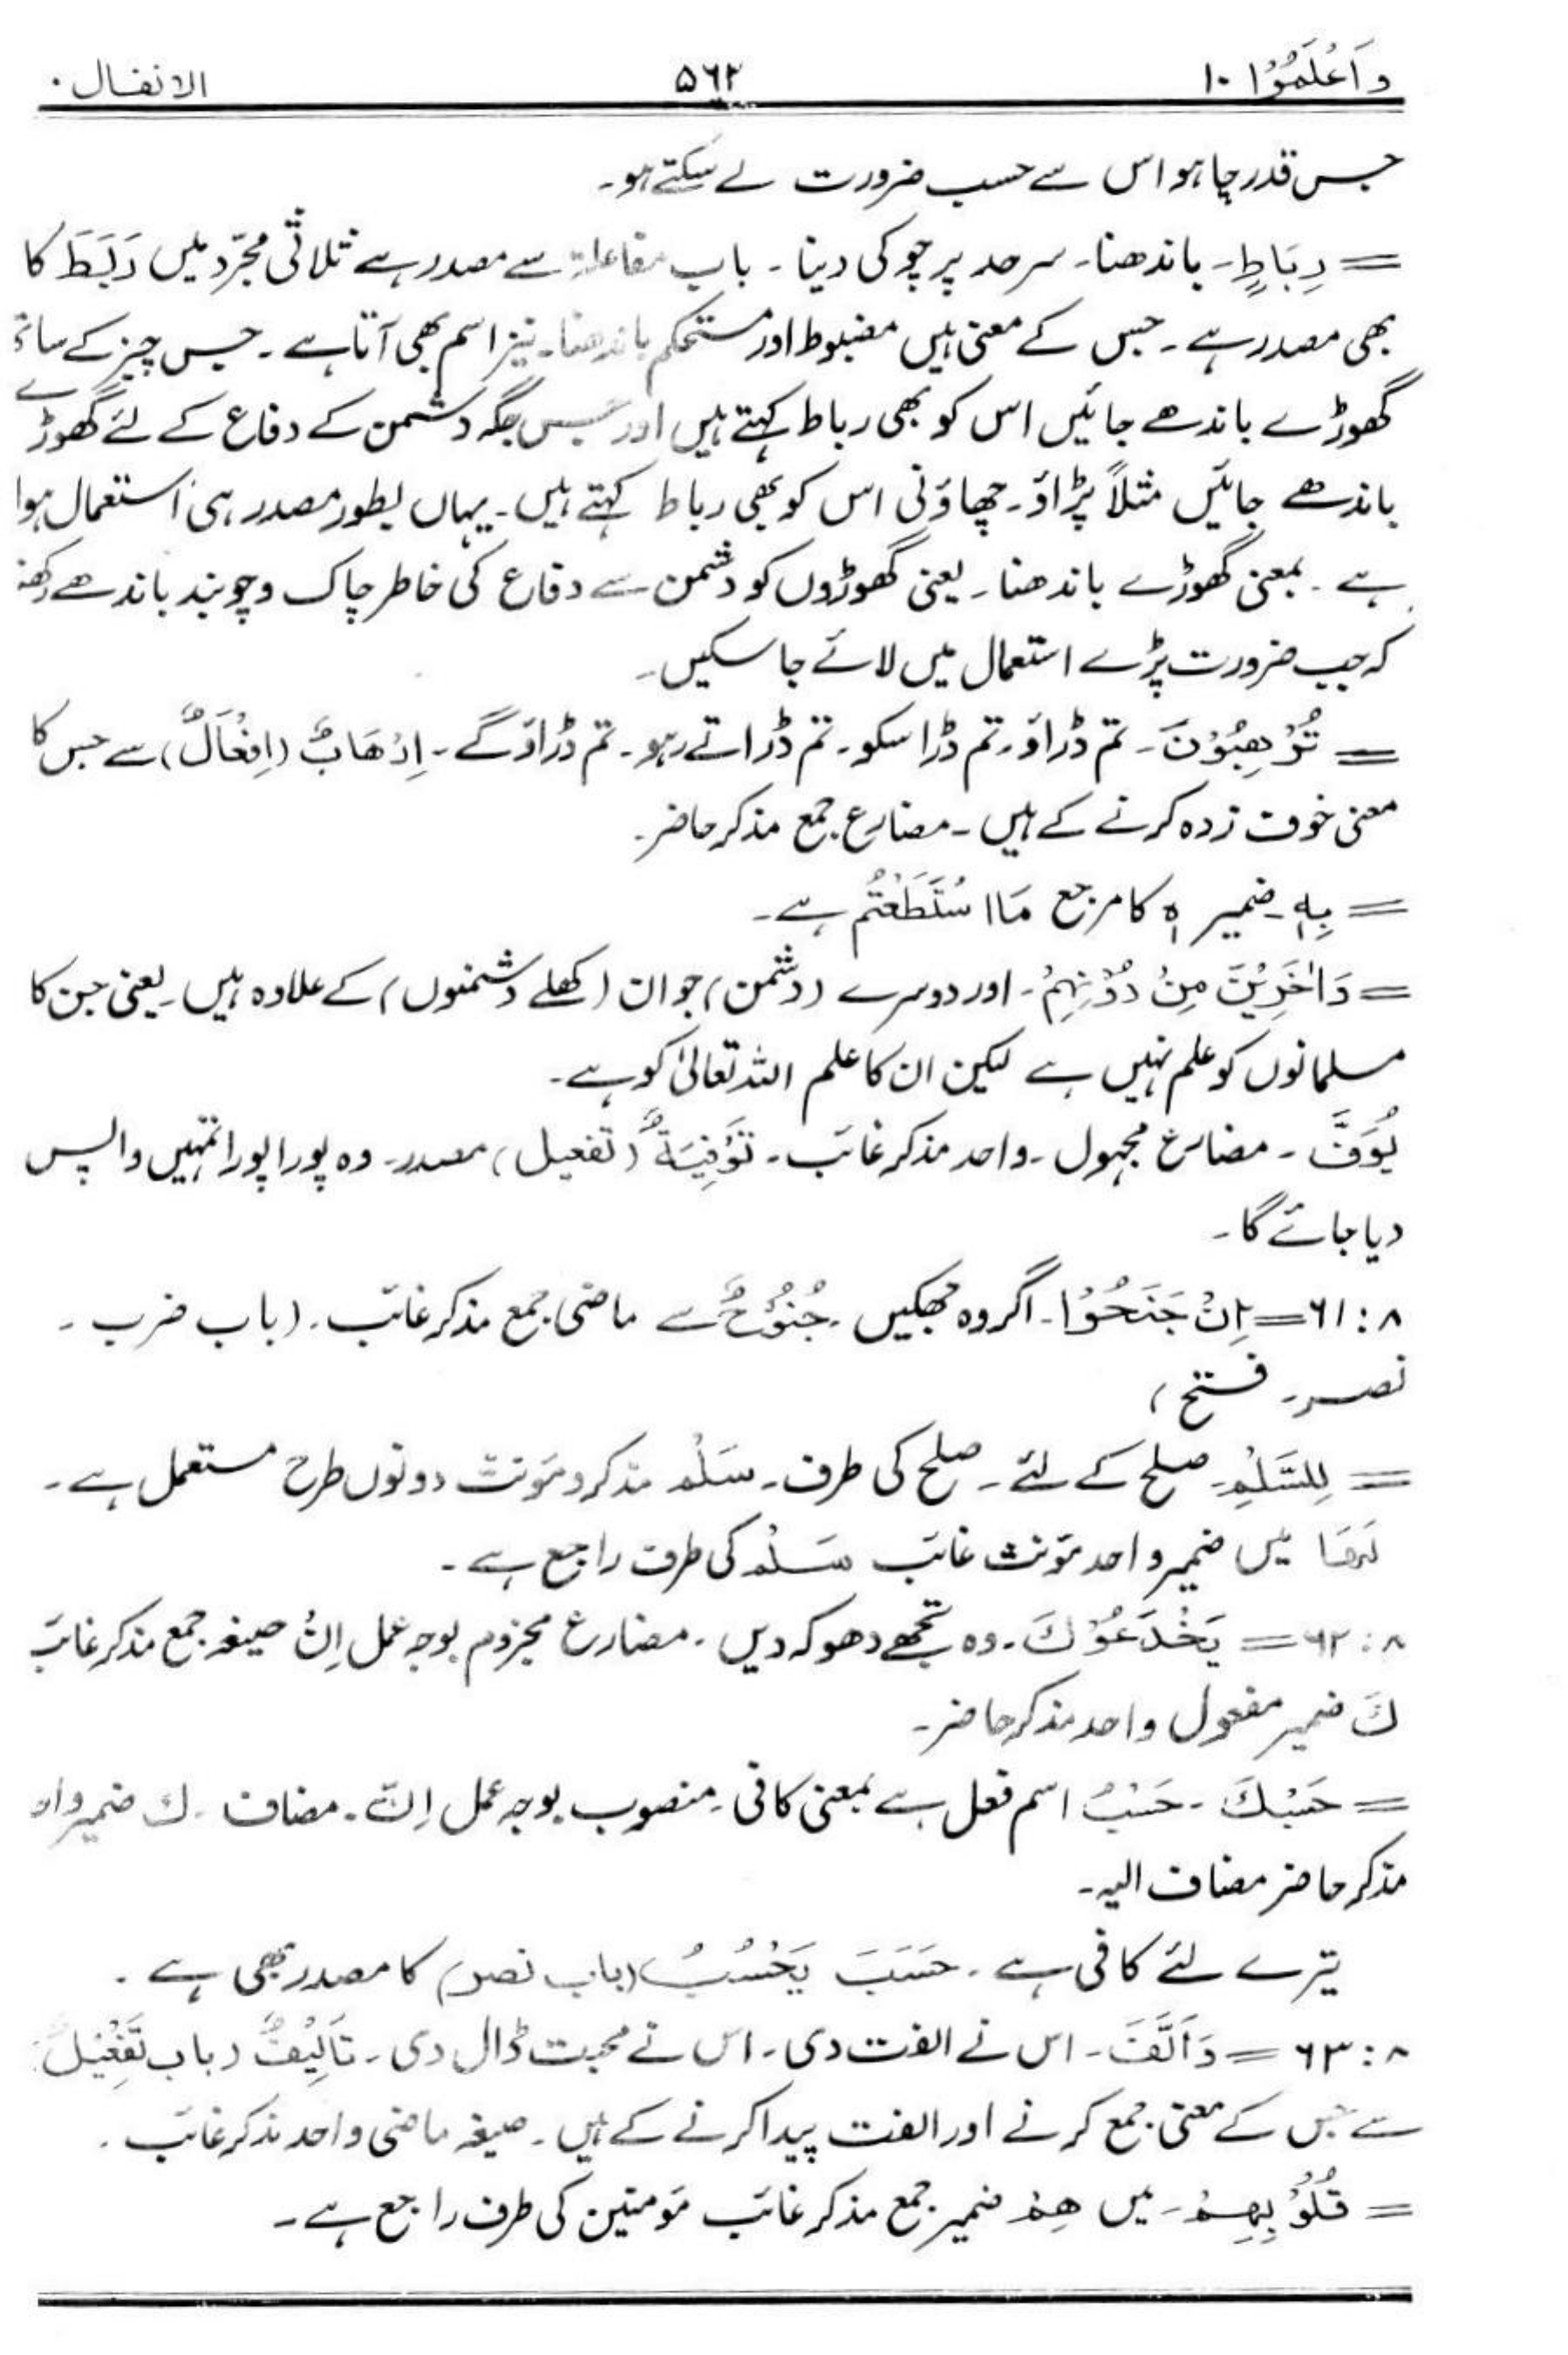 واَعْلَمُوْا ۱۰ ۵۶۲ الانفال ۰
جس قدر چاہو اس سے حسب ضرورت لے سکتے ہو۔
= رِبَاطِ۔ باندھنا۔ سرحد پر چوکی دینا۔ باب مفاعلۃ سے مصدر ہے ثلاثی مجرّد میں رَبَطَ کا
بھی مصدر ہے۔ جس کے معنی ہیں مضبوط اور مستحکم باندھنا۔ نیز اسم بھی آتا ہے۔ جس چیز کے ساتھ
گھوڑے باندھے جائیں اس کو بھی رباط کہتے ہیں اور جس جگہ دشمن کے دفاع کے لئے گھوڑے
باندھے جائیں مثلاً پڑاؤ۔ چھاؤنی اس کو بھی رباط کہتے ہیں۔ یہاں بطور مصدر ہی استعمال ہوا
ہے۔ بمعنی گھوڑے باندھنا۔ یعنی گھوڑوں کو دشمن سے دفاع کی خاطر چاک و چوبند باندھے رکھنا
کہ جب ضرورت پڑے استعمال میں لائے جا سکیں۔
= تُرْهِبُوْنَ۔ تم ڈراؤ۔ تم ڈرا سکو۔ تم ڈراتے رہو۔ تم ڈراؤ گے۔ اِرْهَابٌ (اِفْعَالٌ) سے جس کا
معنی خوف زدہ کرنے کے ہیں۔ مضارع جمع مذکر حاضر۔
= بِهٖ۔ ضمیر ہٖ کا مرجع مَا اسْتَطَعْتُمْ ہے۔
= وَاٰخَرِيْنَ مِنْ دُوْنِهِمْ۔ اور دوسرے (دشمن) جو ان (کھلے دشمنوں) کے علاوہ ہیں۔ یعنی جن کا
مسلمانوں کو علم نہیں ہے لیکن ان کا علم اللہ تعالیٰ کو ہے۔
يُوَفَّ۔ مضارع مجہول۔ واحد مذکر غائب۔ تَوْفِيَةٌ (تفعیل) مصدر۔ وہ پورا پورا تمہیں واپس
دیا جائے گا۔
۸:۶۱ = اِنْ جَنَحُوْا۔ اگر وہ جھکیں۔ جُنُوْحٌ سے ماضی جمع مذکر غائب۔ (باب ضرب۔
نصر۔ فتح)
= لِلسَّلْمِ۔ صلح کے لئے۔ صلح کی طرف۔ سَلْمٌ مذکر و مؤنث دونوں طرح مستعمل ہے۔
لَهَا میں ضمیر واحد مؤنث غائب سَلْمٌ کی طرف راجع ہے۔
۸:۶۲ = يَخْدَعُوْكَ۔ وہ تجھے دھوکہ دیں۔ مضارع مجزوم بوجہ عمل اِنْ صیغہ جمع مذکر غائب
كَ ضمیر مفعول واحد مذکر حاضر۔
= حَسْبَكَ۔ حَسْبُ اسم فعل ہے بمعنی کافی۔ منصوب بوجہ عمل اِنَّ۔ مضاف۔ ك ضمیر واحد
مذکر حاضر مضاف الیہ۔
تیرے لئے کافی ہے۔ حَسَبَ يَحْسُبُ (باب نصر) کا مصدر بھی ہے۔
۸:۶۳ = وَاَلَّفَ۔ اس نے الفت دی۔ اس نے محبت ڈال دی۔ تَاْلِيْفٌ (باب تَفْعِيْلٌ
سے جس کے معنی جمع کرنے اور الفت پیدا کرنے کے ہیں۔ صیغہ ماضی واحد مذکر غائب۔
= قُلُوْبِهِمْ۔ میں هِمْ ضمیر جمع مذکر غائب مؤمنین کی طرف راجع ہے۔